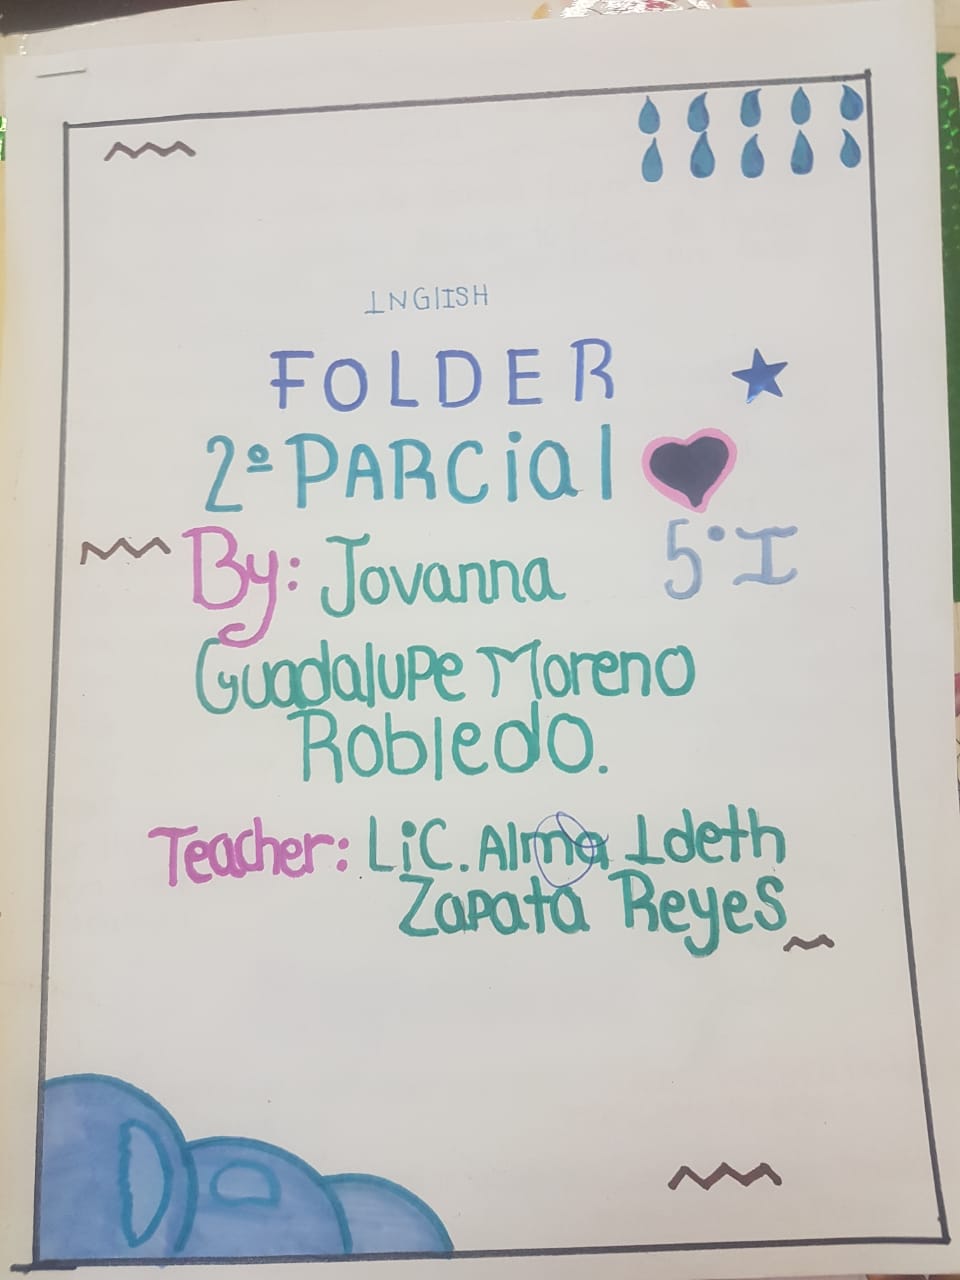 INGlISH
FOLDER
2º PARCial
By: Jovanna 5° I
Guadalupe Moreno
Robledo.
Teacher: Lic. Alma Ideth
Zapata Reyes